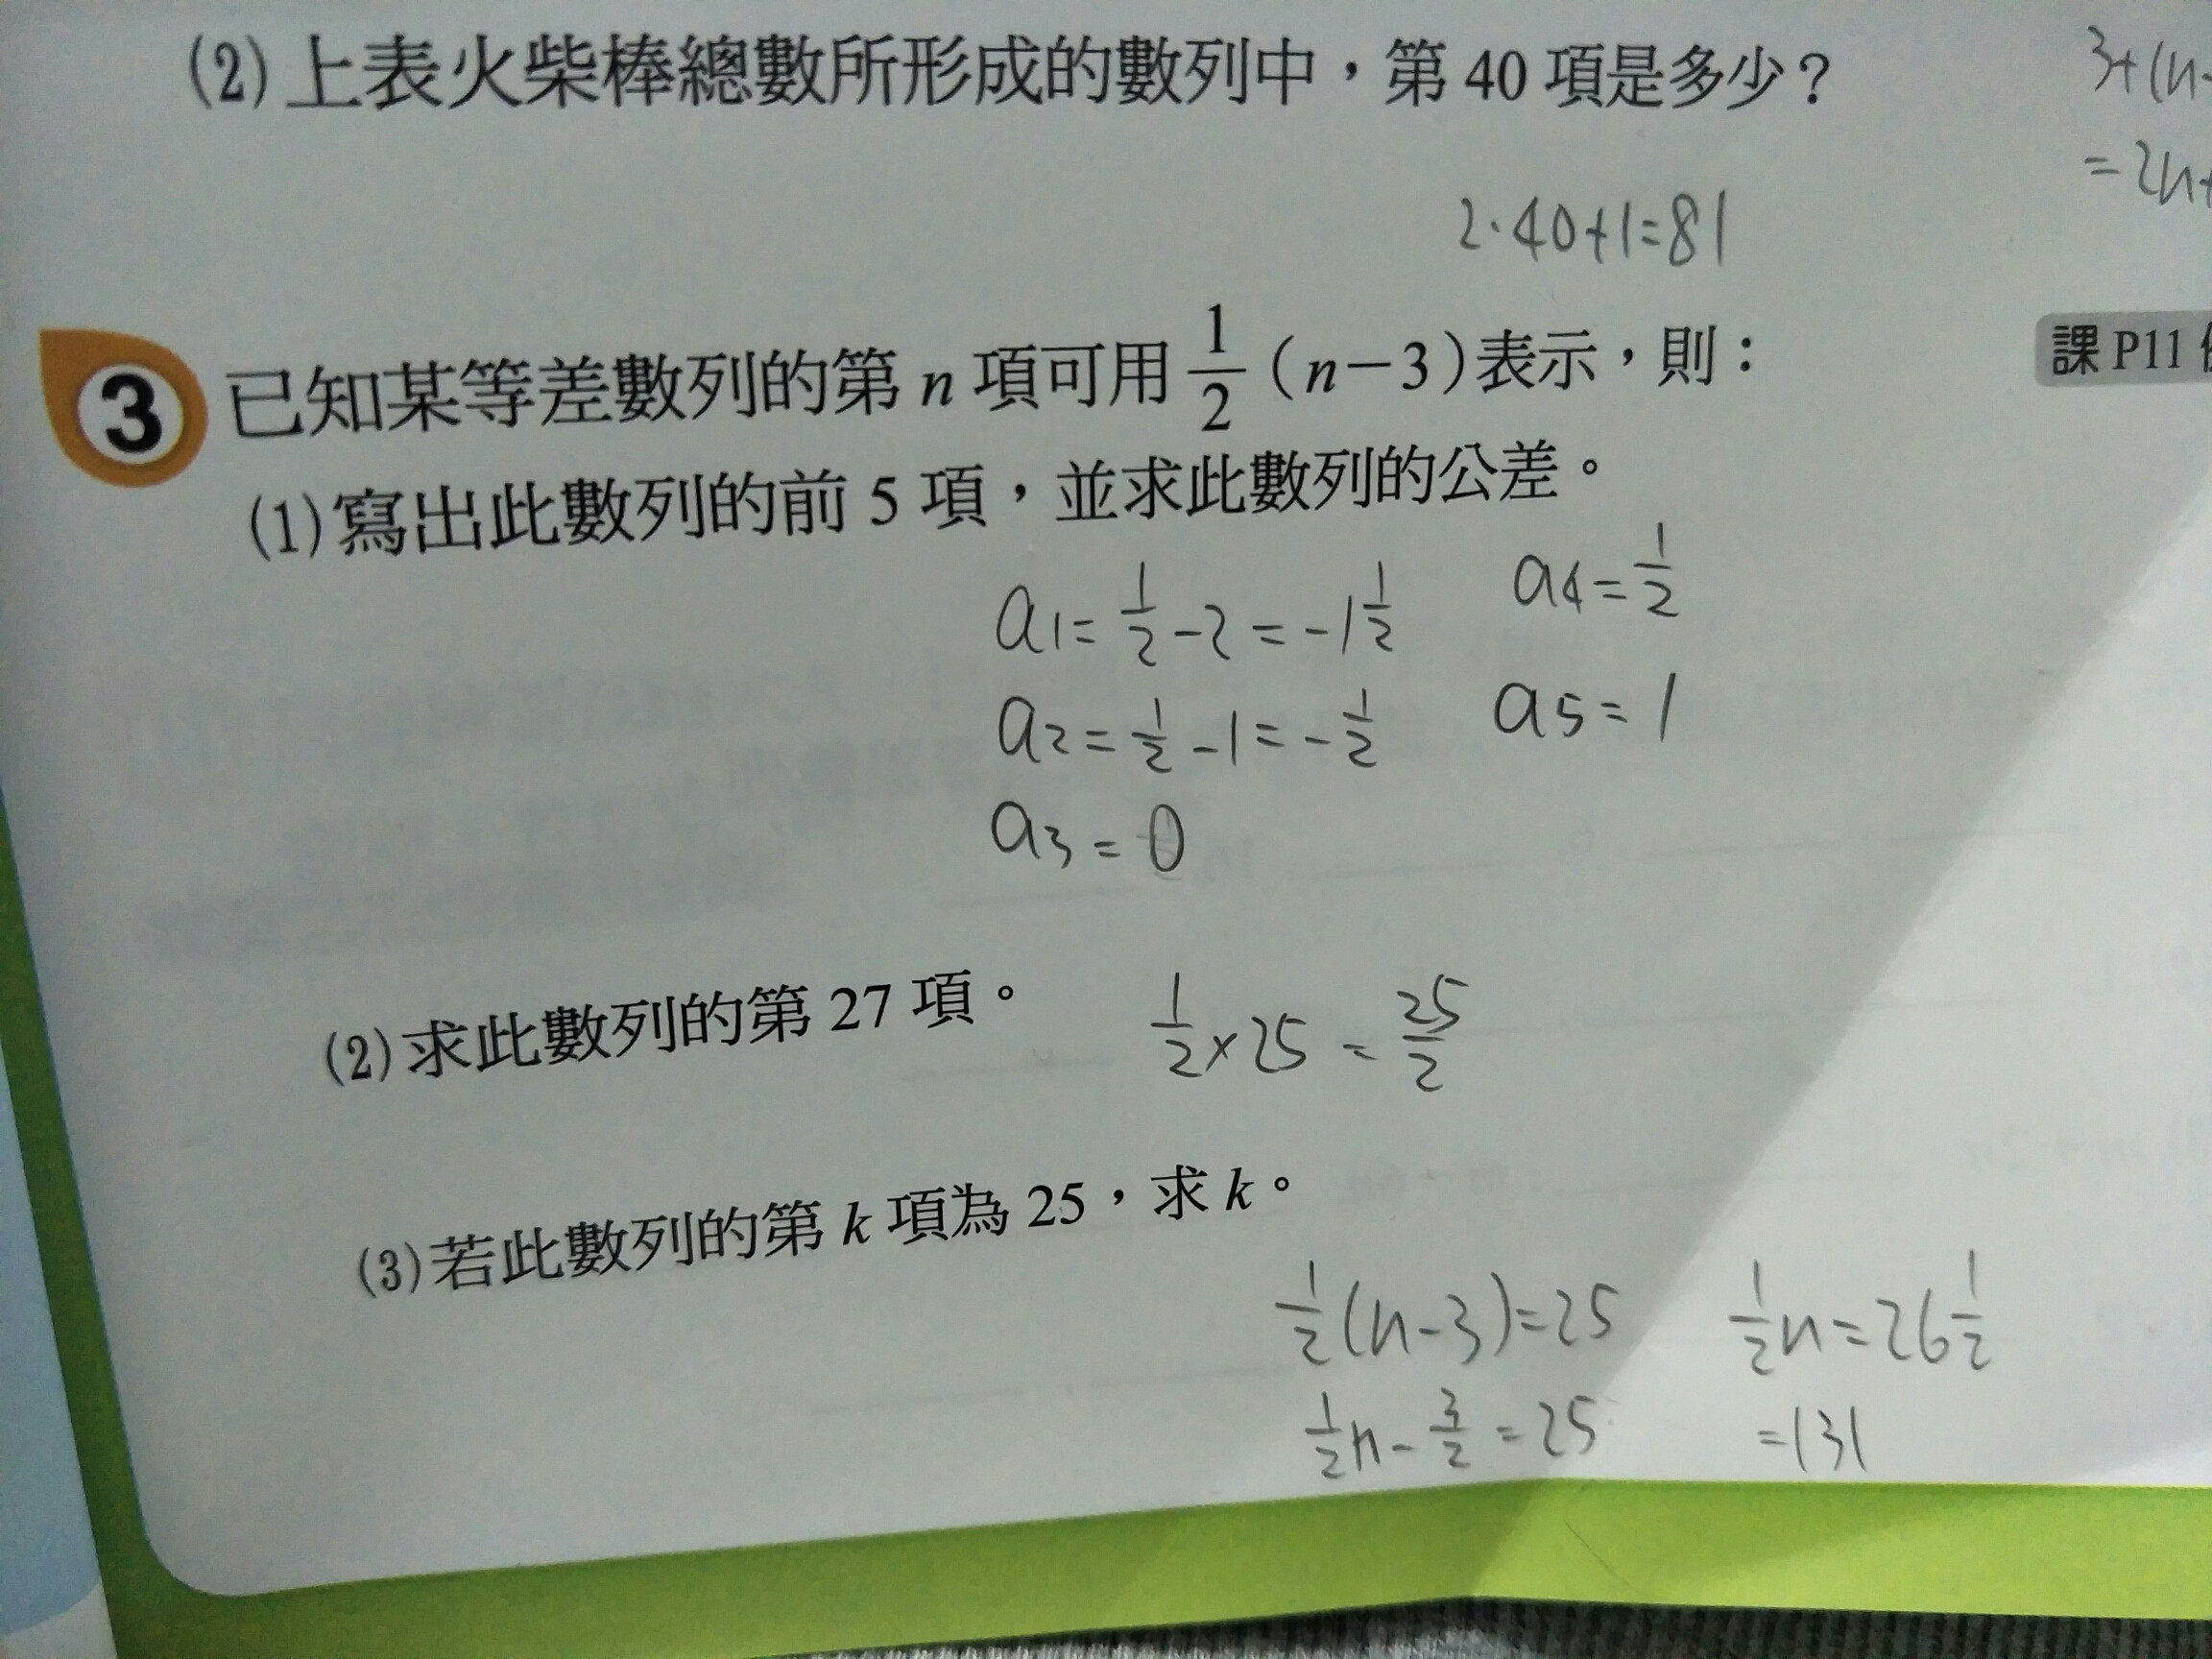 (2)上表火柴棒總數所形成的數列中，第 40 項是多少？
3+(n-
=2n+
2·40+1=81
3 已知某等差數列的第 n 項可用 1/2 (n-3)表示，則：
課 P11
(1)寫出此數列的前 5 項，並求此數列的公差。
a1=1/2-2=-1 1/2 a4=1/2
a2=1/2-1=-1/2 a5=1
a3=0
(2)求此數列的第 27 項。 1/2×25=25/2
(3)若此數列的第 k 項為 25，求 k。
1/2(n-3)=25 1/2n=26 1/2
1/2n-3/2=25 =131